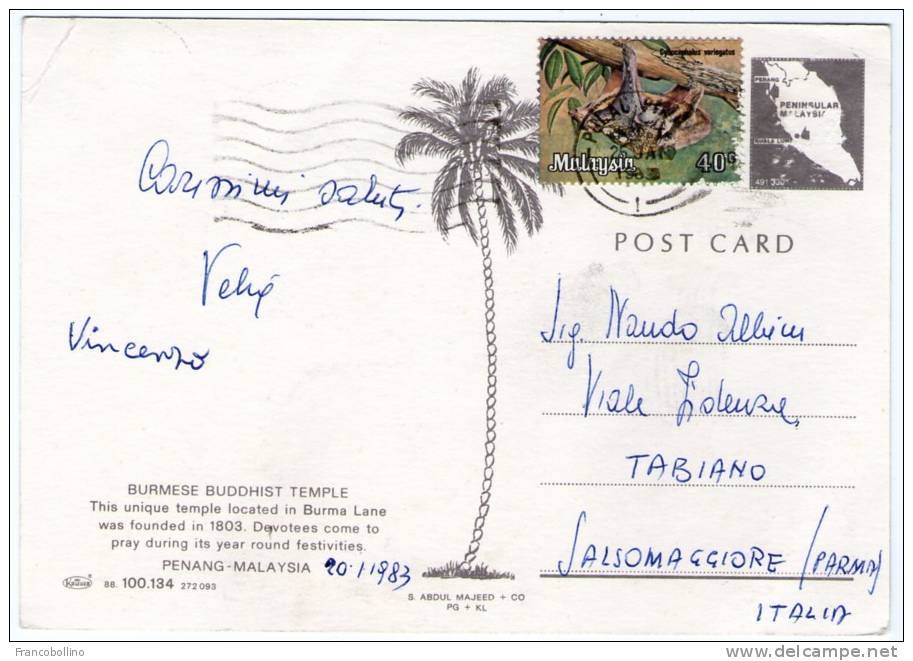 Cynocephalus variegatus
Malaysia 40c
1983
1
PENANG
PENINSULAR
MALAYSIA
KUALA LUMPUR
491 330
POST CARD
Carissimi saluti
Vincenzo
Sig. Nando
Viale Fidenza,
TABIANO
SALSOMAGGIORE (PARMA)
ITALIA
BURMESE BUDDHIST TEMPLE
This unique temple located in Burma Lane
was founded in 1803. Devotees come to
pray during its year round festivities.
PENANG-MALAYSIA 20.1.1983
Kruger
88. 100.134 272 093
S. ABDUL MAJEED + CO
PG + KL
Francobollino
delcampe.net